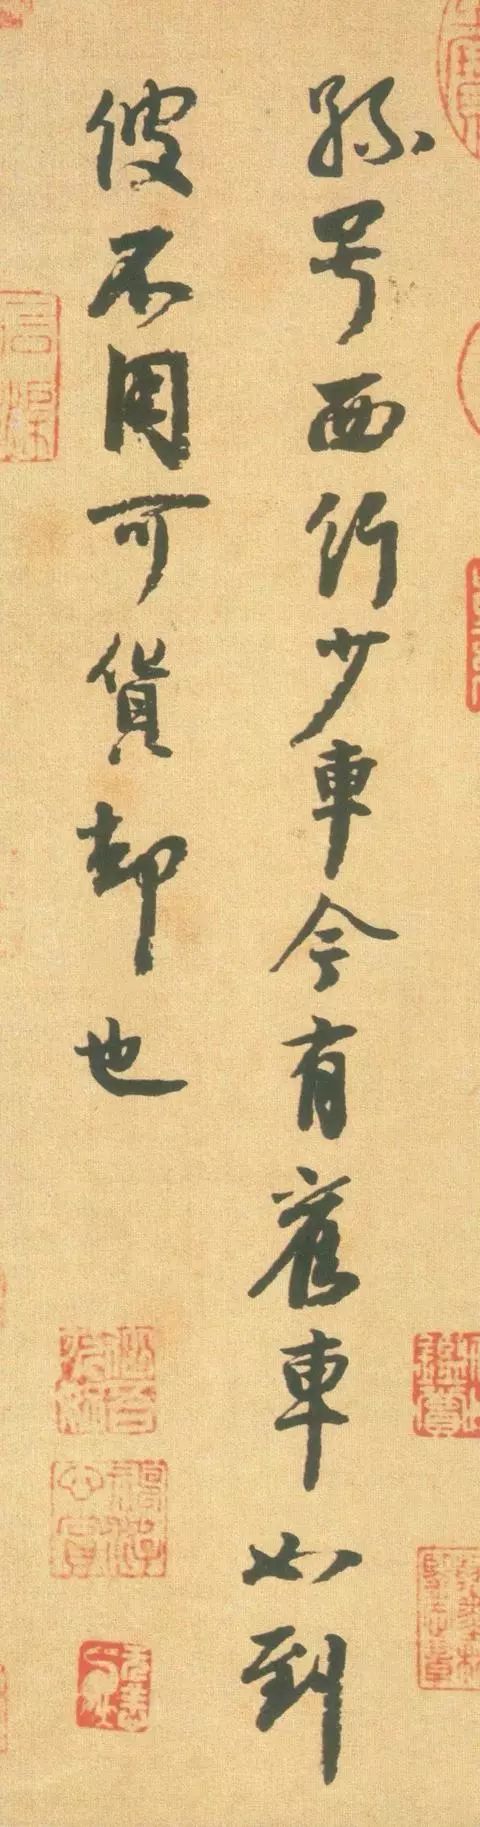 孫号西行少車今有舊車如到
彼不用可貨却也